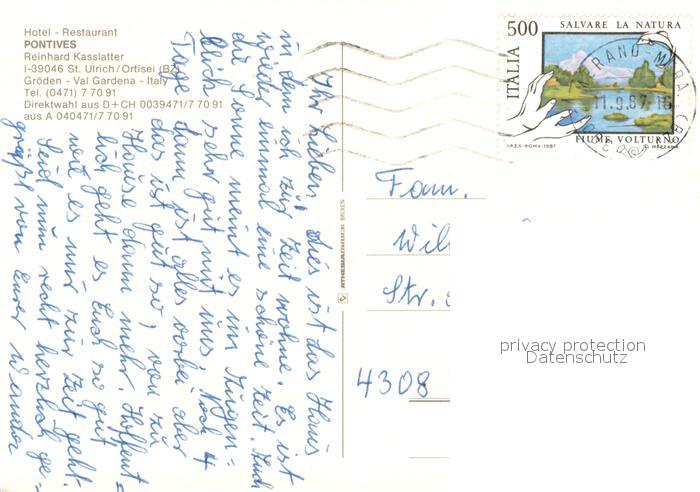 Hotel - Restaurant
PONTIVES
Reinhard Kasslatter
I-39046 St. Ulrich/Ortisei (BZ)
Gröden - Val Gardena - Italy
Tel. (0471) 7 70 91
Direktwahl aus D+CH 0039471/7 70 91
aus A 040471/7 70 91
Ihr Lieben, dies ist das Haus
in dem ich zur Zeit wohne. Es ist
wieder einmal eine schöne Zeit. Auch
die Sonne meint es im Augen=
blick sehr gut mit uns. Noch 4
Tage dann ist alles vorbei, aber
das ist gut so, von zu
Hause dann mehr. Hoffent=
lich geht es Euch so gut
wie es mir zur Zeit geht.
Seid nun recht herzlich ge=
grüßt von Eurer
ATHESIADRUCK BRIXEN
500
ITALIA
SALVARE LA NATURA
FIUME VOLTURNO
I.P.Z.S.-ROMA-1987
11.9.87
Fam.
Wil
Str.
4308
privacy protection
Datenschutz